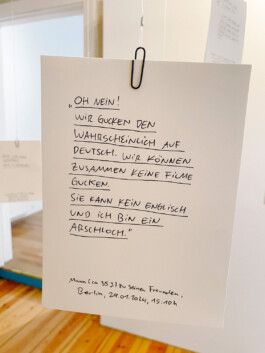 „OH NEIN!
WIR GUCKEN DEN
WAHRSCHEINLICH AUF
DEUTSCH. WIR KÖNNEN
ZUSAMMEN KEINE FILME
GUCKEN.
SIE KANN KEIN ENGLISCH
UND ICH BIN EIN
ARSCHLOCH."
Mann (ca 35 J) zu seinen Freunden,
Berlin, 24.01.2024, 15:10h